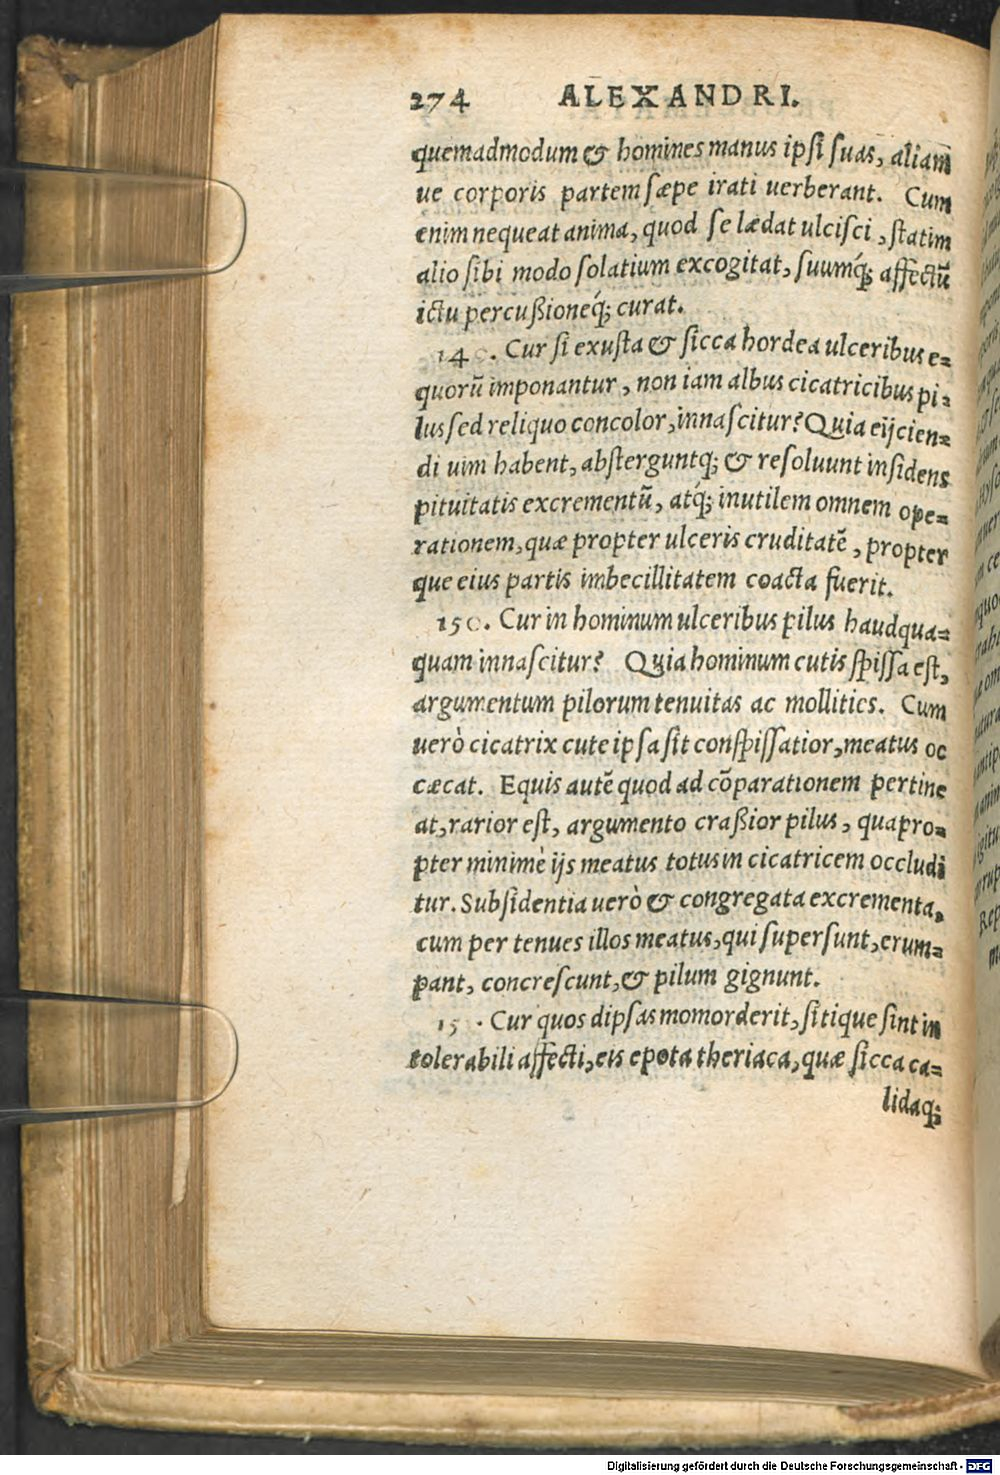 274 ALEXANDRI.
quemadmodum & homines manus ipsi suas, aliam
ue corporis partem sæpe irati uerberant. Cum
enim nequeat anima, quod se lædat ulcisci, statim
alio sibi modo solatium excogitat, suumq́; affectū
ictu percußioneq́; curat.
Cur si exusta & sicca hordea ulceribus e=
quorū imponantur, non iam albus cicatricibus pi=
lus sed reliquo concolor, innascitur? Quia eijcien=
di uim habent, absterguntq; & resoluunt insidens
pituitatis excrementū, atq́; inutilem omnem ope=
rationem, quæ propter ulceris cruditatē, propter
que eius partis imbecillitatem coacta fuerit.
150. Cur in hominum ulceribus pilus haudqua=
quam innascitur? Quia hominum cutis spissa est,
argumentum pilorum tenuitas ac mollities. Cum
uerò cicatrix cute ipsa sit conspissatior, meatus oc
cæcat. Equis autē quod ad cōparationem pertine
at, rarior est, argumento craßior pilus, quapro=
pter minimè ijs meatus totus in cicatricem occludi
tur. Subsidentia uerò & congregata excrementa,
cum per tenues illos meatus, qui supersunt, erum=
pant, concrescunt, & pilum gignunt.
Cur quos dipsas momorderit, sitique sint in
tolerabili affecti, eis epota theriaca, quæ sicca ca=
lidaq;
Digitalisierung gefördert durch die Deutsche Forschungsgemeinschaft - DFG